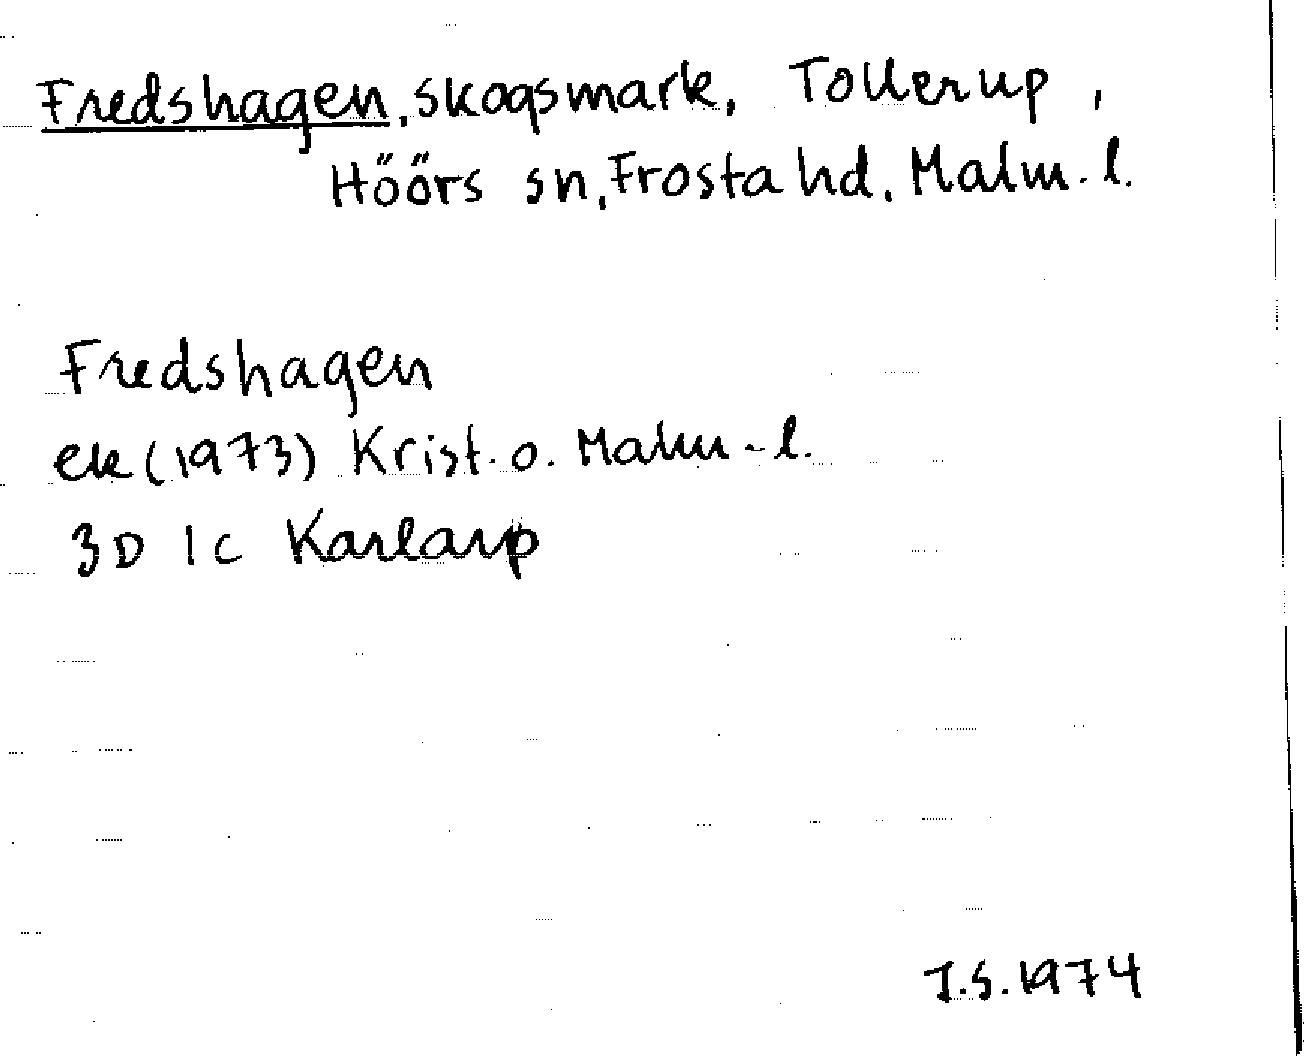 Fredshagen, skogsmark, Tollerup,
Höörs sn, Frosta hd, Malm. l.
Fredshagen
ek (1973) Krist. o. Malm-l.
3D 1c Karlarp
I.S. 1974